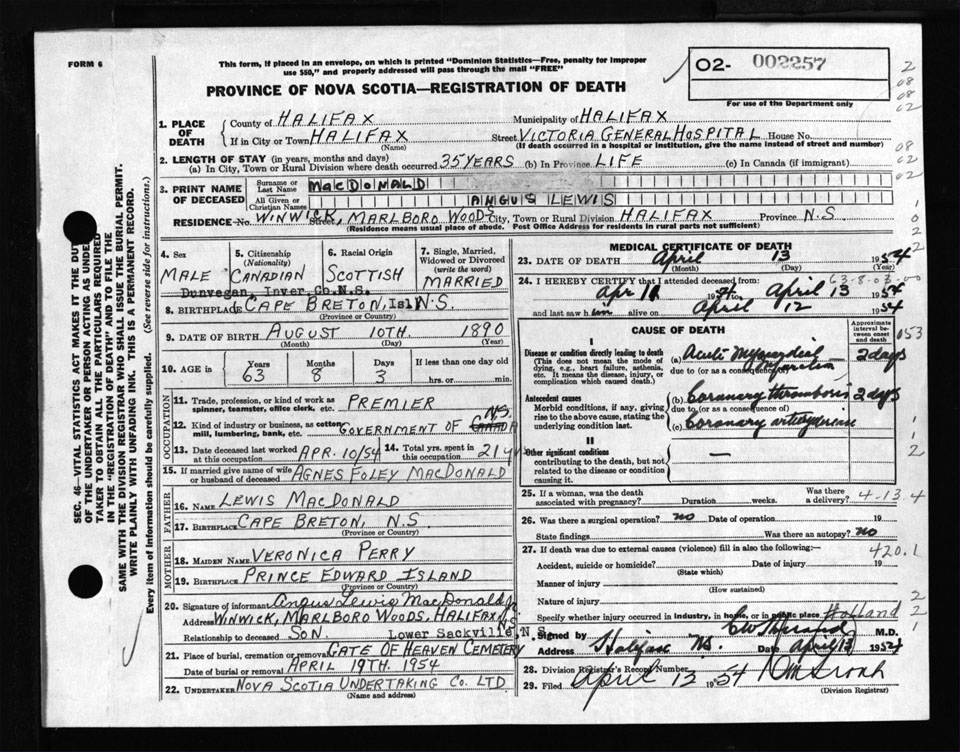 FORM 6
This form, if placed in an envelope, on which is printed "Dominion Statistics—Free, penalty for improper
use $50," and properly addressed will pass through the mail "FREE"
O2- 002257
For use of the Department only
PROVINCE OF NOVA SCOTIA—REGISTRATION OF DEATH
1. PLACE OF DEATH
County of HALIFAX Municipality of HALIFAX
If in City or Town HALIFAX Street VICTORIA GENERAL HOSPITAL House No.
(Name) (If death occurred in a hospital or institution, give the name instead of street and number)
2. LENGTH OF STAY (in years, months and days)
(a) In City, Town or Rural Division where death occurred 35 YEARS (b) In Province LIFE (c) In Canada (if immigrant)
3. PRINT NAME OF DECEASED
Surname or Last Name MacDONALD
All Given or Christian Names ANGUS LEWIS
RESIDENCE—No. WINWICK, Street, MARLBORO WOODS City, Town or Rural Division HALIFAX Province N.S.
(Residence means usual place of abode. Post Office Address for residents in rural parts not sufficient)
4. Sex
MALE
5. Citizenship
(Nationality)
CANADIAN
6. Racial Origin
SCOTTISH
7. Single, Married,
Widowed or Divorced
(write the word)
MARRIED
Dunvegan, Inver.Co.N.S.
8. BIRTHPLACE CAPE BRETON, Isl N.S.
(Province or Country)
9. DATE OF BIRTH AUGUST 10TH. 1890
(Month) (Day) (Year)
10. AGE in
Years 63
Months 8
Days 3
If less than one day old
hrs. or min.
OCCUPATION
11. Trade, profession, or kind of work as
spinner, teamster, office clerk, etc. PREMIER
12. Kind of industry or business, as cotton
mill, lumbering, bank, etc. GOVERNMENT OF CANADA N.S.
13. Date deceased last worked
at this occupation APR. 10/54
14. Total yrs. spent in
this occupation 21 yr
15. If married give name of wife
or husband of deceased AGNES FOLEY MACDONALD
FATHER
16. Name LEWIS MACDONALD
17. Birthplace CAPE BRETON, N.S.
(Province or Country)
MOTHER
18. Maiden Name VERONICA PERRY
19. Birthplace PRINCE EDWARD ISLAND
(Province or Country)
20. Signature of informant Angus Lewis MacDonald Jr
Address WINWICK, MARLBORO WOODS, HALIFAX N.S
Relationship to deceased SON.
Lower Sackville, N.S.
21. Place of burial, cremation or removal GATE OF HEAVEN CEMETERY
Date of burial or removal APRIL 19TH. 1954
22. UNDERTAKER NOVA SCOTIA UNDERTAKING CO. LTD
(Name and address)
MEDICAL CERTIFICATE OF DEATH
23. DATE OF DEATH April 13 1954
(Month) (Day) (Year)
24. I HEREBY CERTIFY that I attended deceased from:
63-8-03-00
Apr 11 1954 to April 13 1954
and last saw him alive on April 12 1954
CAUSE OF DEATH
Approximate
interval between
onset and
death
I
Disease or condition directly leading to death
(This does not mean the mode of
dying, e.g., heart failure, asthenia,
etc. It means the disease, injury, or
complication which caused death.)
(a) Acute Myocardial Infarction 2 days
due to (or as a consequence of)
Antecedent causes
Morbid conditions, if any, giving
rise to the above cause, stating the
underlying condition last.
(b) Coronary thrombosis 2 days
due to (or as a consequence of)
(c) Coronary
II
Other significant conditions
contributing to the death, but not
related to the disease or condition
causing it.
—
25. If a woman, was the death
associated with pregnancy? Duration weeks. Was there
a delivery? 4-13-4
26. Was there a surgical operation? no Date of operation 19
State findings Was there an autopsy? no
27. If death was due to external causes (violence) fill in also the following:— 420.1
Accident, suicide or homicide? Date of injury 19
(State which)
Manner of injury
(How sustained)
Nature of injury
Specify whether injury occurred in industry, in home, or in public place
Signed by M.D.
Address Halifax NS Date April 13 1954
28. Division Registrar's Record Number
29. Filed April 12 1954
(Division Registrar)
SEC. 46—VITAL STATISTICS ACT MAKES IT THE DUTY
OF THE UNDERTAKER OR PERSON ACTING AS UNDER-
TAKER TO OBTAIN ALL THE PARTICULARS REQUIRED
IN THE "REGISTRATION OF DEATH" AND TO FILE THE
SAME WITH THE DIVISION REGISTRAR WHO SHALL ISSUE THE BURIAL PERMIT.
WRITE PLAINLY WITH UNFADING INK. THIS IS A PERMANENT RECORD.
Every item of information should be carefully supplied. (See reverse side for instructions.)